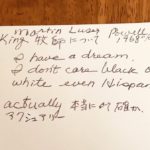 Martin Luser Powell
King 牧師について 1968
I have a dream.
I don't care black or
white even Hispan
actually 本当に 的確か.
アクシュアリー